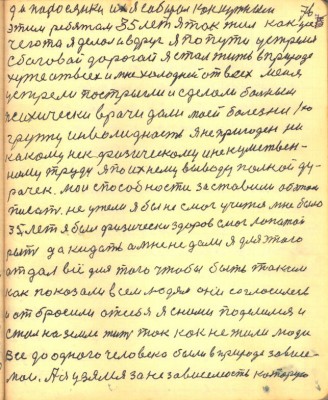 76
да паросенки и я с
этим ребятам 35 лет я так жил как
чегота я делол и вдруг я по пути устремя
с боговой дорогой я стал жить в природе
хуже всех и мне холодней от всех меня
усмтрели постригли и сделали больным
психически врачи дали моей болезни 1ю
групу инволидность я непригоден ни
какому не к физическому и не к умствен-
ному труду я по ихнему выводу полной ду-
рачек. мои способности заставили об этом
писать. не ужели я бы не смог учится мне было
35 лет я был физически здоров смог лопатой
рыть да кидать а мне не дали я для этого
отдал всё для того чтобы быть таким
как показали всем людям они согласились
и отбросили от себя я с ними поделился и
стал на земле жить так как не жили люди
все до одного человека были в природе зависи-
мы. А я узялся за независемость которую